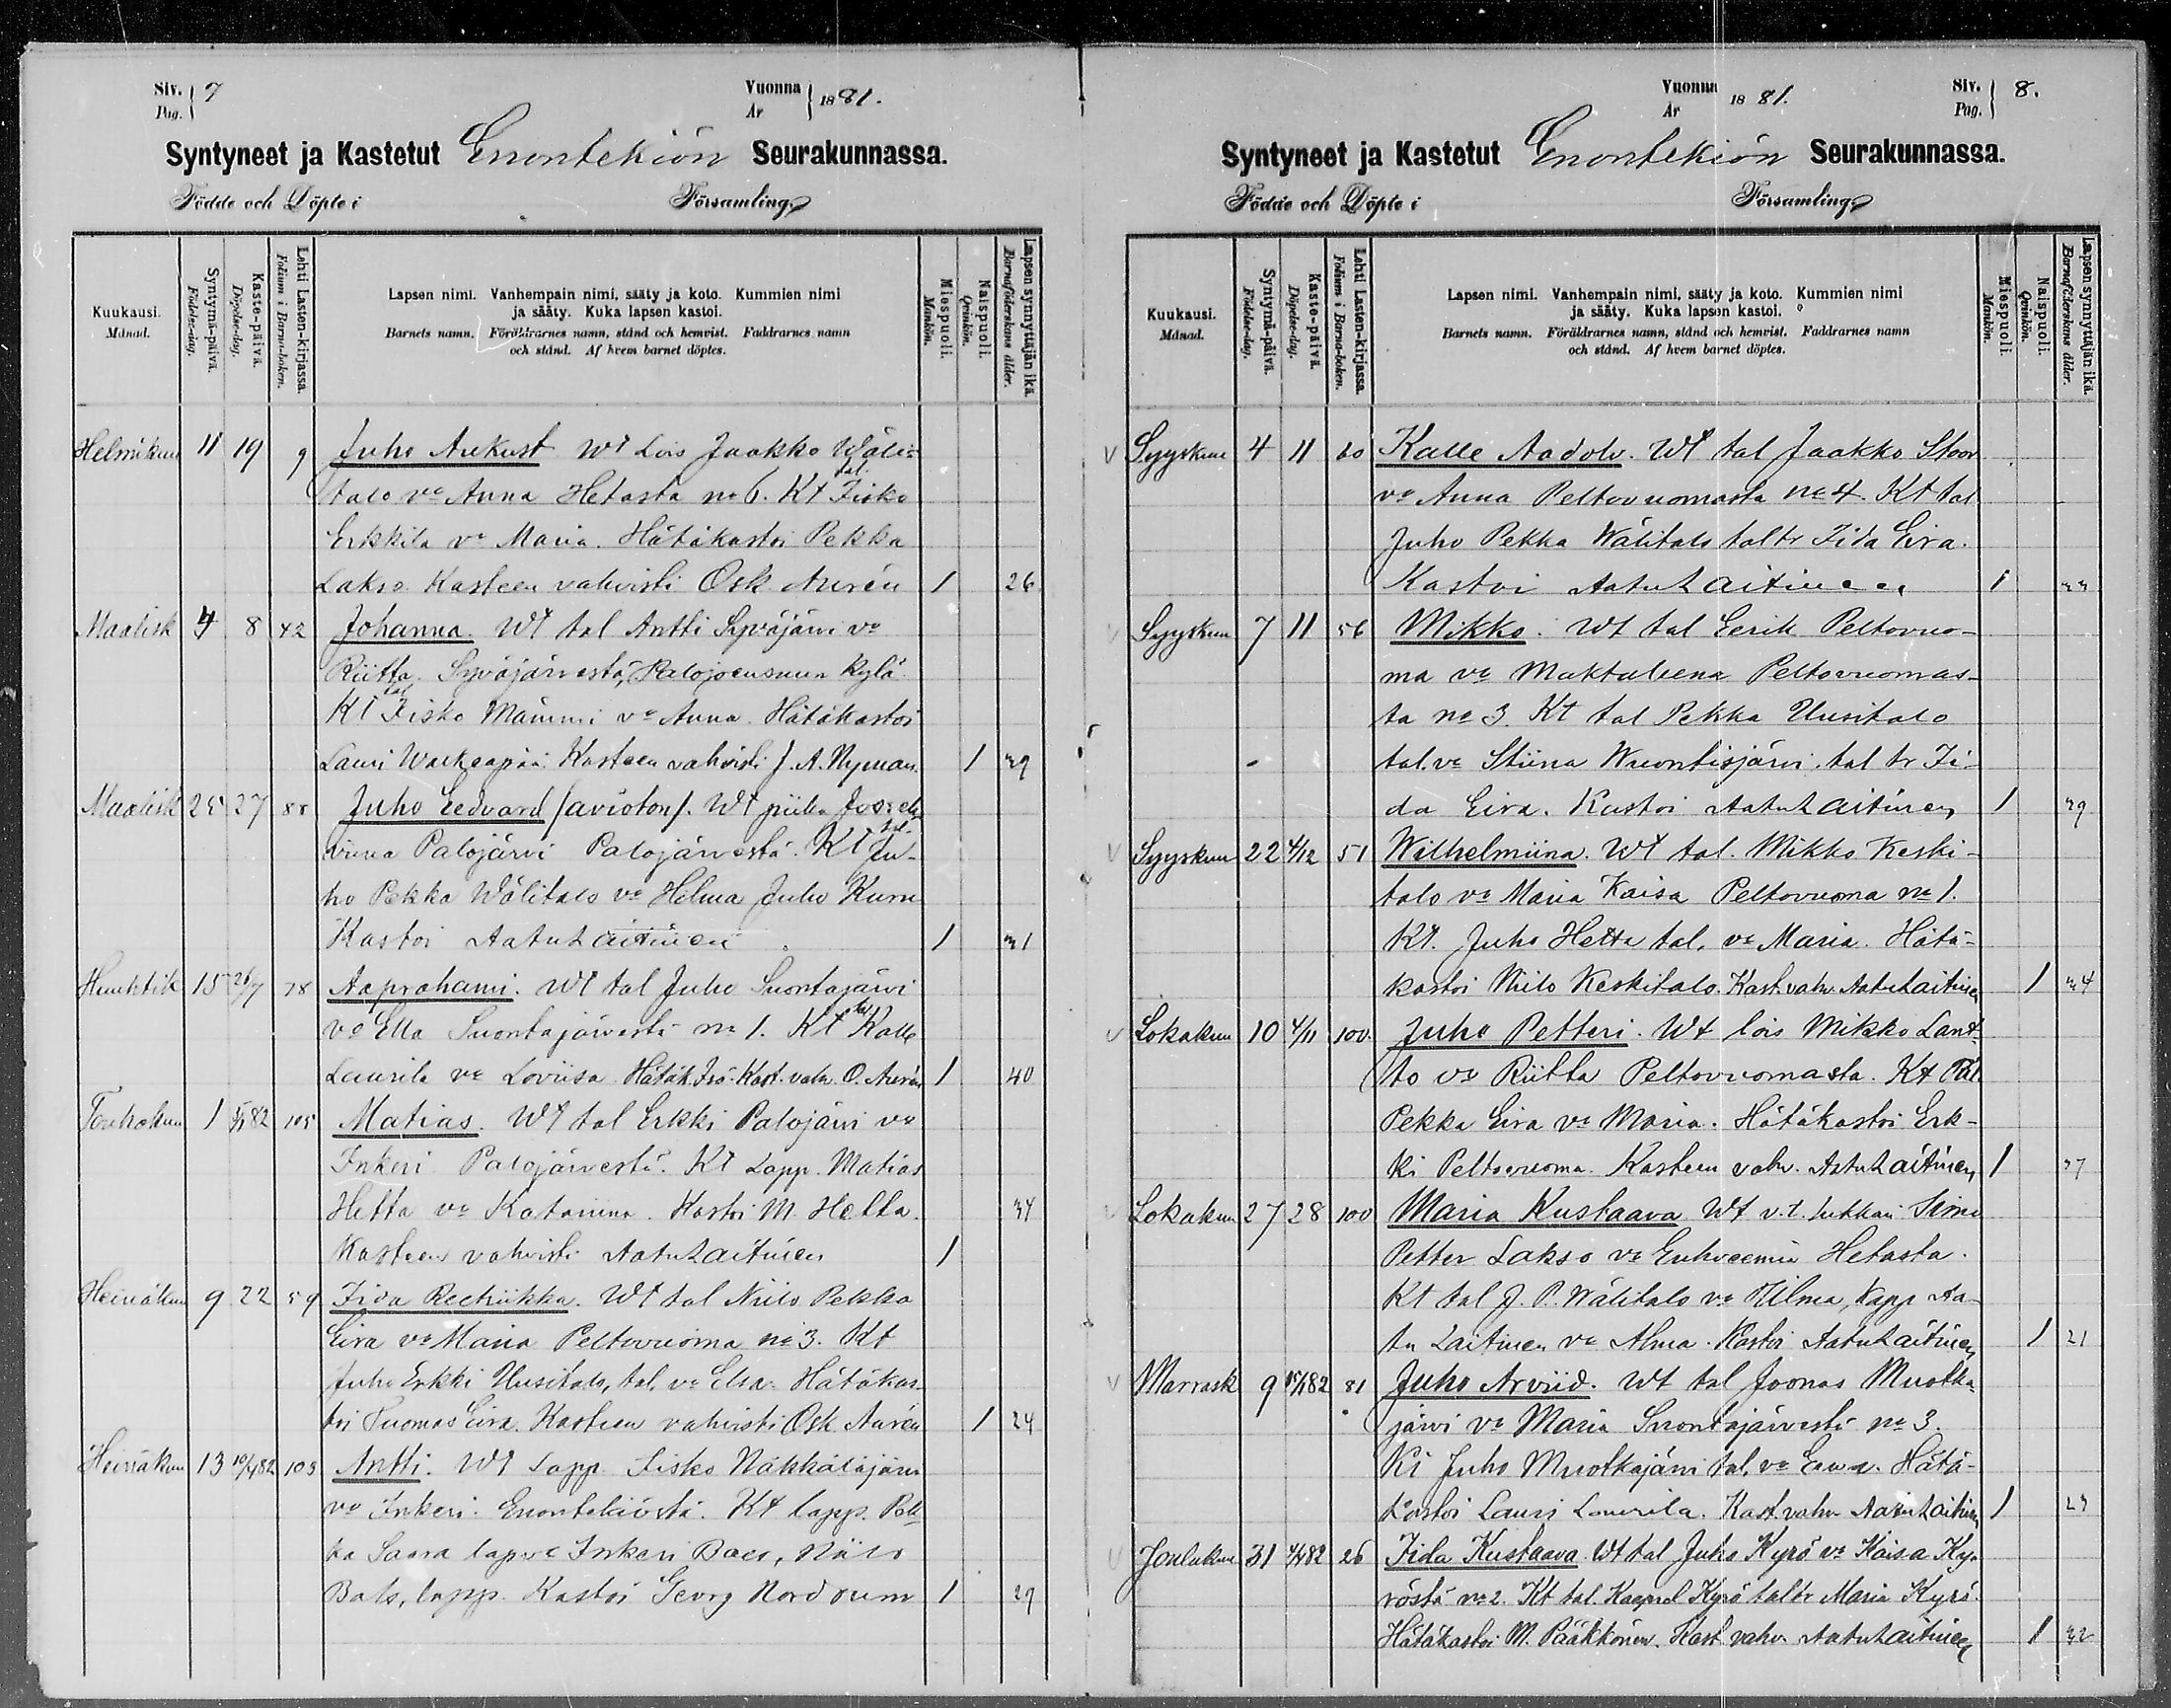 Siv. Pag. 7
Vuonna År 1881.
Syntyneet ja Kastetut Enontekiön Seurakunnassa.
Födde och Döpte i Församling
Kuukausi. Månad.
Syntymä-päivä. Födelse-dag.
Kaste-päivä. Döpelse-dag.
Lehti Lasten-kirjassa. Folium i Barna-boken.
Lapsen nimi. Vanhempain nimi, sääty ja koto. Kummien nimi
ja sääty. Kuka lapsen kastoi.
Barnets namn. Föräldrarnes namn, stånd och hemvist. Faddrarnes namn
och stånd. Af hvem barnet döptes.
Miespuoli. Mankön.
Naispuoli. Qvinkön.
Lapsen synnyttäjän ikä. Barnaföderskans ålder.
Helmikuu 11 19 9 Juho Aukust Wt Lois Jaakko Wäli-
talo vo Anna Hetasta no 6. Kt tal. Fisko
Erkkila vo Maria. Hätäkastoi Pekka
Lakso. Kasteen vahvisti Osk Aurén 1 26
Maalisk 4 8 42 Johanna. Wt tal Antti Syväjärvi vo
Riitta. Syväjärvestä, Palojoensuun kylä.
Kt tal Fisko Mämmi vo Anna. Hätäkastoi
Lauri Warkeapää. Kasteen vahvisti J. A. Nyman. 1 39
Maalisk 25 27 88 Juho Eedvard (avioton). Wt piika Jose
viina Palojärvi Palojärvestä. Kt tal. Ju-
ho Pekka Wälitalo vo Helma Juho Kuru
Kastoi Aatu Laitinen 1 31
Huhtik 15 26/7 78 Aaprahami. Wt tal Juho Suontajärvi
vo Ella Suontajärvestä no 1. Kt tal Kalle
Laurila vo Loviisa. Hätäk. Isä. Kast. vahv. O. Aurén 1 40
Toukokuu 1 82 105 Matias. Wt tal Erkki Palojärvi vo
Inkeri Palojärvestä. Kt Lapp. Matias
Hetta vo Katariina. Kastoi M. Hetta. 34
Kasteen vahvisti Aatu Laitinen 1
Heinäkuu 9 22 59 Fiva Reetriikka. Wt tal Niilo Pekka
Eira vo Maria Peltovuoma no 3. Kt
Juho Erkki Uusitalo, tal, vo Elsa. Hätäkas-
toi Tuomas Eira. Kasteen vahvisti Osk. Aurén 1 24
Heinäkuu 13 10/4 82 103 Antti. Wt Lapp. Fisko Näkkäläjärvi
vo Inkeri. Enontekiöstä. Kt lapp. Pek
ka Saara lapp vo Inkeri Baer, Niilo
Bals, lapp. Kastoi Georg Nordrum 1 29
Vuonna År 1881.
Siv. Pag. 8.
Syntyneet ja Kastetut Enontekiön Seurakunnassa.
Födde och Döpte i Församling
Kuukausi. Månad.
Syntymä-päivä. Födelse-dag.
Kaste-päivä. Döpelse-dag.
Lehti Lasten-kirjassa. Folium i Barna-boken.
Lapsen nimi. Vanhempain nimi, sääty ja koto. Kummien nimi
ja sääty. Kuka lapsen kastoi.
Barnets namn. Föräldrarnes namn, stånd och hemvist. Faddrarnes namn
och stånd. Af hvem barnet döptes.
Miespuoli. Mankön.
Naispuoli. Qvinkön.
Lapsen synnyttäjän ikä. Barnaföderskans ålder.
V Syyskuu 4 11 60 Kalle Aadolv. Wt tal Jaakko Stoor
vo Anna Peltovuomasta no 4. Kt tal
Juho Pekka Wälitalo tal tr Fida Eira.
Kastoi Aatu Laitinen 1 33
V Syyskuu 7 11 56 Mikko. Wt tal Eerik Peltovuo-
ma vo Maktaleena Peltovuomas-
ta no 3. Kt tal Pekka Uusitalo
tal. vo Stiina Wuontisjärvi, tal tr Fi-
da Eira. Kastoi Aatu Laitinen 1 39
V Syyskuu 22 4/12 51 Wilhelmiina. Wt tal. Mikko Keski-
talo vo Maria Kaisa Peltovuoma no 1.
Kt. Juho Hetta tal, vo Maria. Hätä-
kastoi Niilo Keskitalo. Kast. vahv. Aatu Laitinen 1 34
V Lokakuu 10 4/11 100. Juho Petteri. Wt lois Mikko Lant-
to vo Riitta Peltovuomasta. Kt Tal.
Pekka Eira vo Maria. Hätäkastoi Erk-
ki Peltovuoma. Kasteen vahv. Aatu Laitinen 1 37
V Lokakuu 27 28 100 Maria Kustaava Wt v.t. lukkari Simo
Petter Lakso vo Euhveemia Hetasta.
Kt tal J. P. Wälitalo vo Hilma, Kapp Aa-
tu Laitinen vo Alma. Kastoi Aatu Laitinen 1 21
V Marrask 9 15/1 82 81 Juho Arviid. Wt tal Joonas Muotka-
järvi vo Maria Suontajärvestä no 3.
Kt Juho Muotkajärvi tal, vo Eeva. Hätä-
kastoi Lauri Laurila. Kast. vahv Aatu Laitinen 1 23
V Joulukuu 31 4/1 82 26 Fida Kustaava. Wt tal Juho Kyrö vo Kaisa Ky-
röstä no 2. Kt tal. Kaaprel Kyrö tal tr Maria Kyrö.
Hätäkastoi M. Pääkkönen. Kast. vahv. Aatu Laitinen 1 32